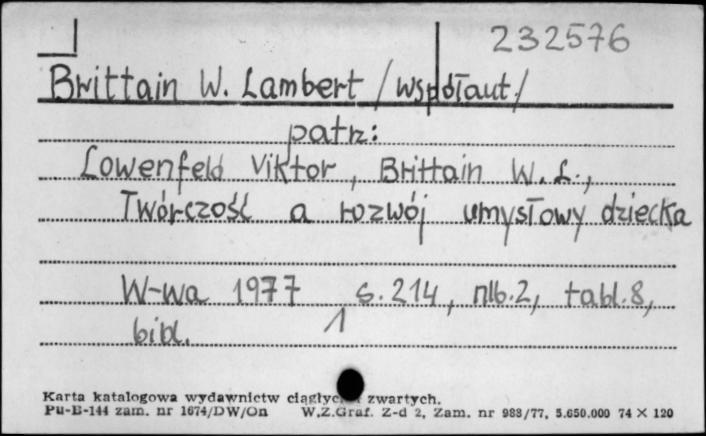 232576
Brittain W. Lambert /współaut/
patrz:
Lowenfeld Viktor, Brittain W. L.,
Twórczość a rozwój umysłowy dziecka
W-wa 1977 s. 214, nlb. 2, tabl. 8,
bibl. 1
Karta katalogowa wydawnictw ciągłych i zwartych.
Pu-B-144 zam. nr 1674/DW/On W.Z.Graf. Z-d 2, Zam. nr 988/77, 5.650.000 74 × 120